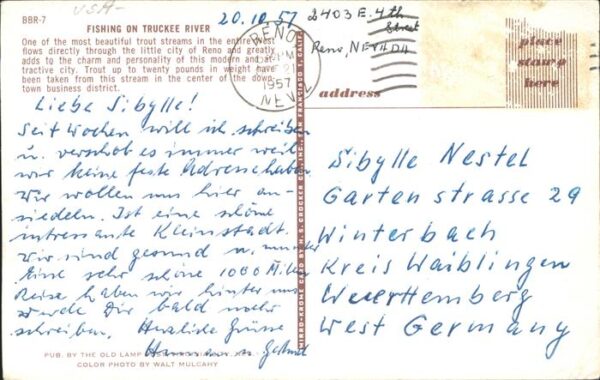 USA-
BBR-7
FISHING ON TRUCKEE RIVER
One of the most beautiful trout streams in the entire West
flows directly through the little city of Reno and greatly
adds to the charm and personality of this modern and at-
tractive city. Trout up to twenty pounds in weight have
been taken from this stream in the center of the down-
town business district.
20.10.57
Liebe Sibylle!
Seit Wochen will ich schreiben
u. verschob es immer weil
wir keine feste Adresse haben
Wir wollen uns hier an-
siedeln. Ist eine schöne
intressante Kleinstadt.
Wir sind gesund u. munter
Eine sehr schöne 1000 Milen
Reise haben wir hinter uns
werde Dir bald mehr
schreiben. Herzliche Grüsse
PUB. BY THE OLD LAMP
COLOR PHOTO BY WALT MULCAHY
RENO
PM
21
1957
NEV.
2403 E. 4th
Street
Reno, NEVADA
place
stamp
here
address
Sibylle Nestel
Gartenstrasse 29
Winterbach
Kreis Waiblingen
Wuerttemberg
West Germany